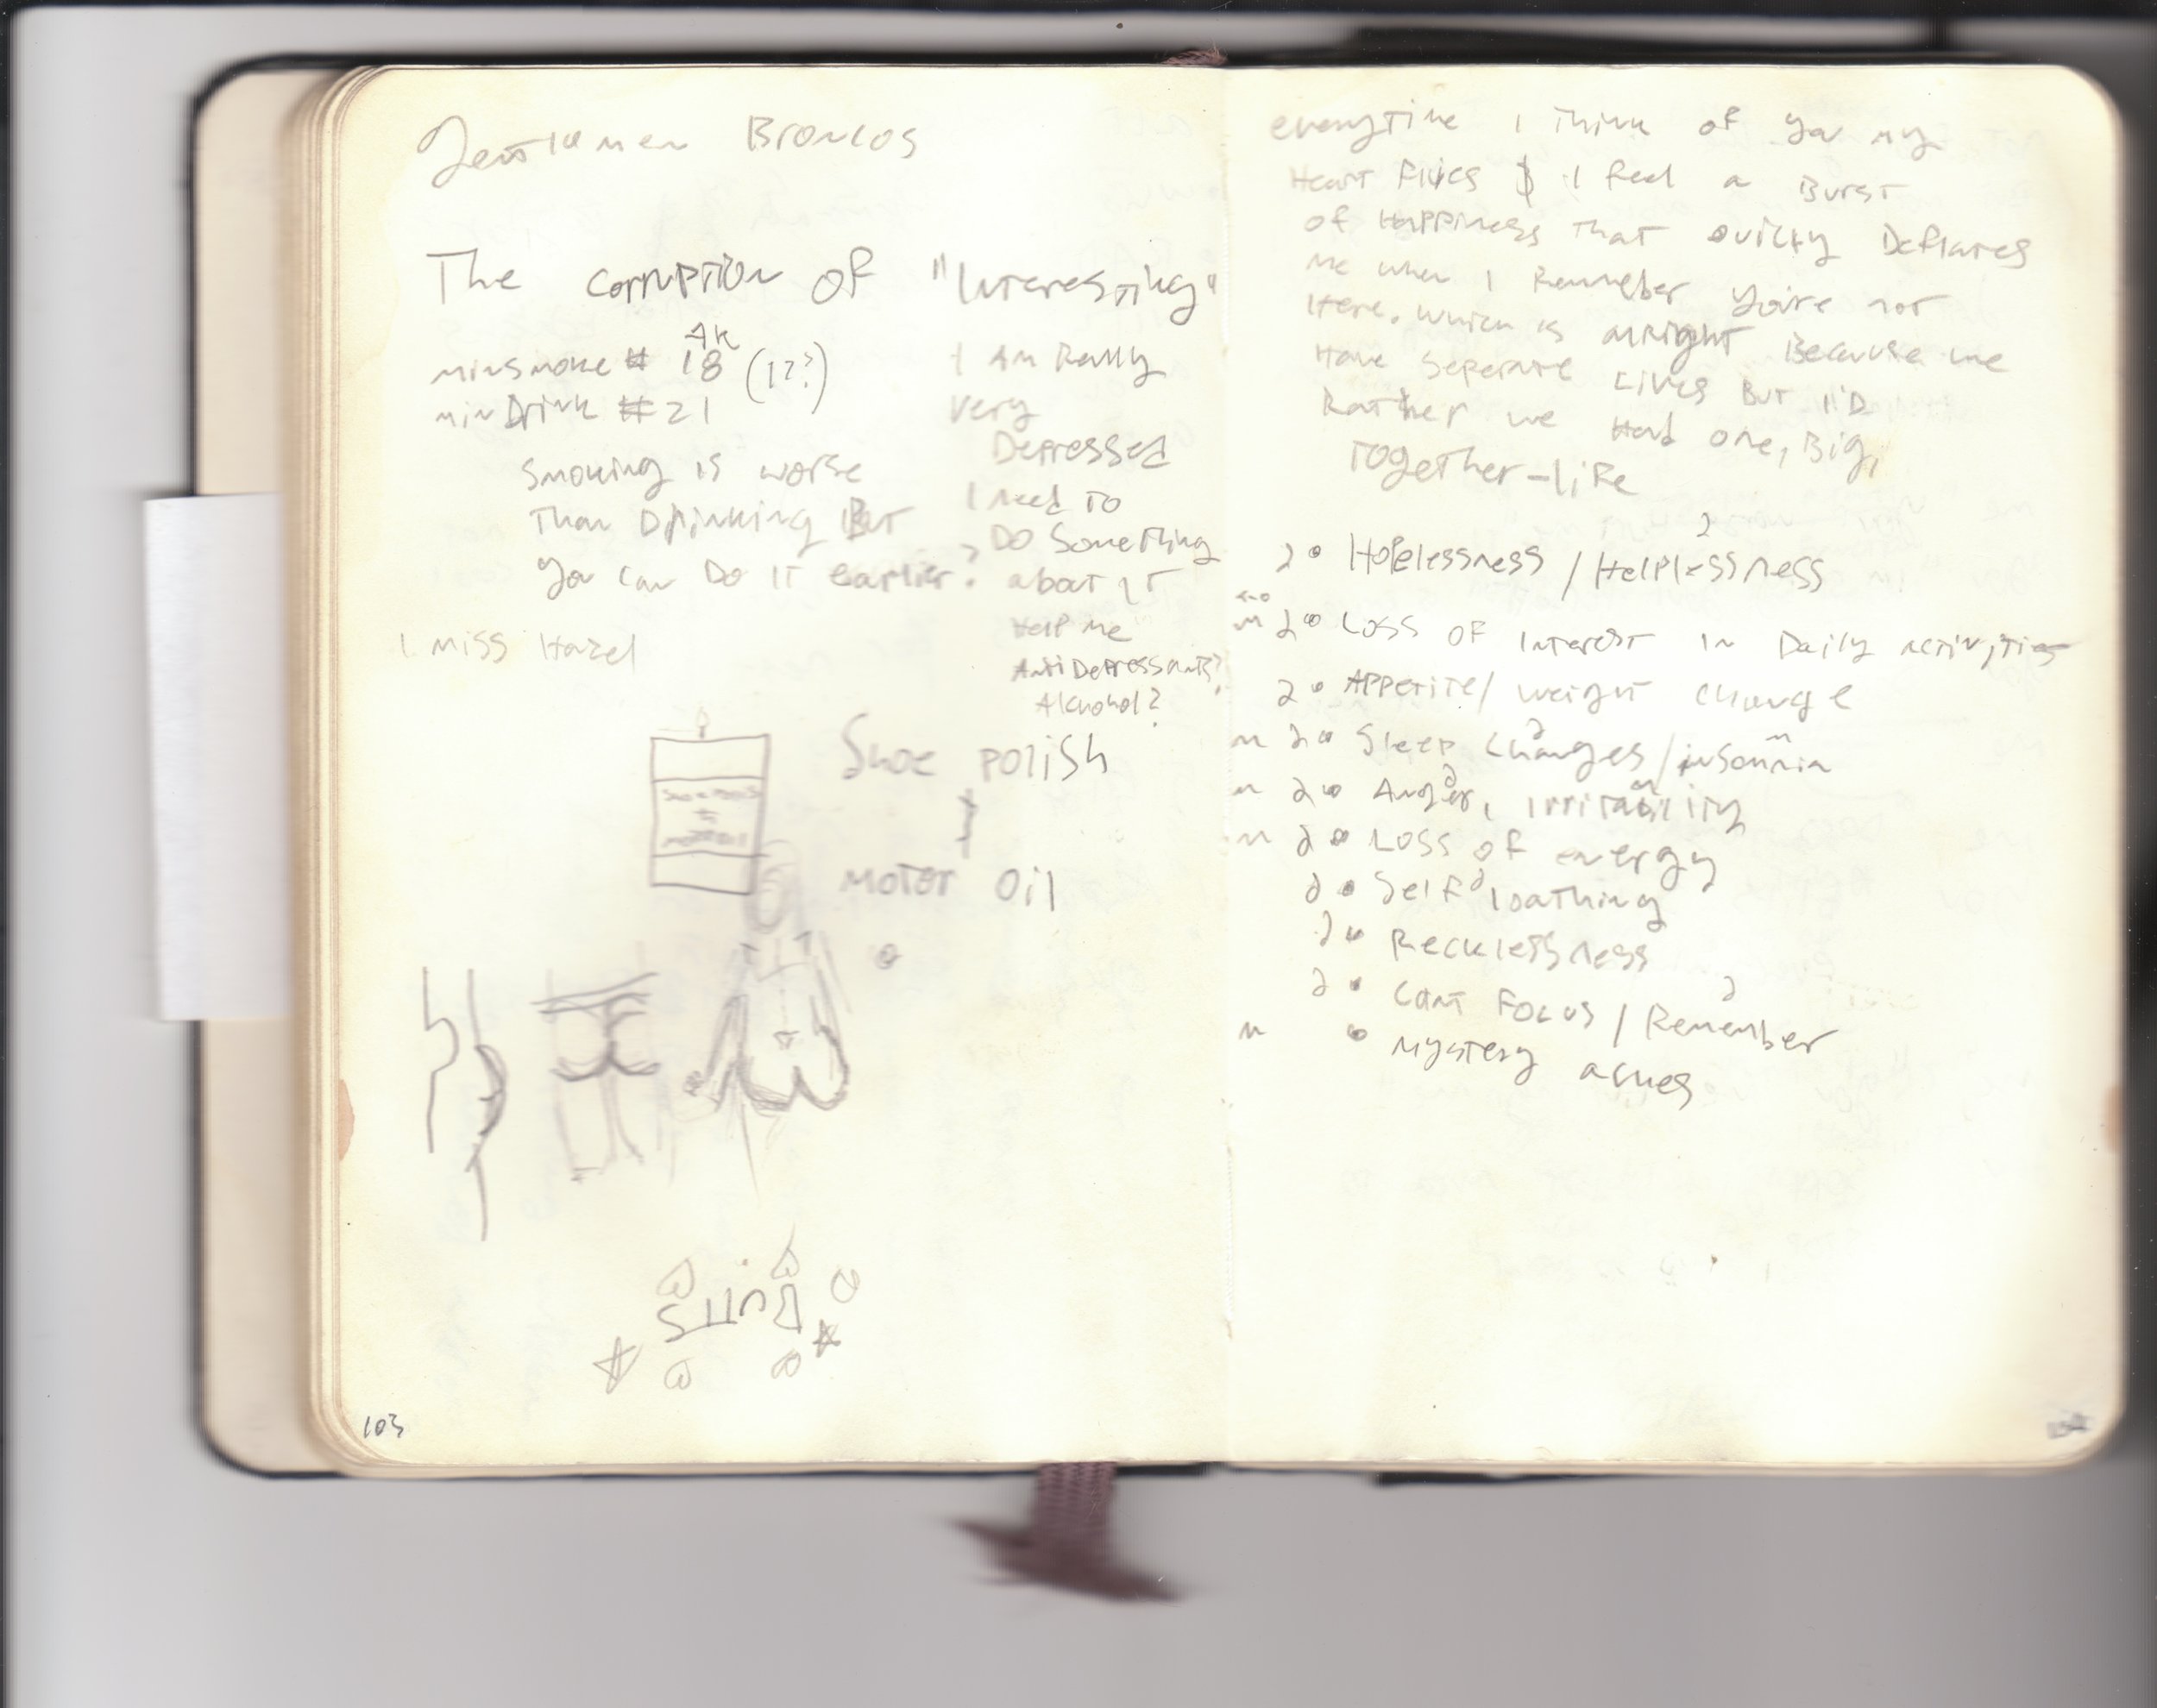 Gentlemen Broncos
The corruption of "Interesting"
AK
minsmoke # 18 (1??)
min Drink # 21
Smoking is worse
Than Drinking But
you can Do it earlier?
I Am Really
very
Depressed
I need to
Do Something
about it
Help me
AntiDepressants?
Alcohol?
I miss Hazel
Shoe polish
}
Motor Oil
Butts
103
everytime I Think of you my
Heart flies & I feel a Burst
of Happiness that quickly Deflates
me when I Remember you're not
Here. which is allright Because we
Have seperate Lives But I'D
Rather we Had one, Big,
Together-life
2 • Hopelessness / Helplessness 2
m 2 • Loss of Interest in Daily activities
2 • Appetite / weight change
m 2 • Sleep changes / insomnia
m 2 • Anger, irritability
m 2 • Loss of energy
2 • Self loathing
2 • Recklessness
2 • Cant Focus / Remember 2
m • Mystery aches
104